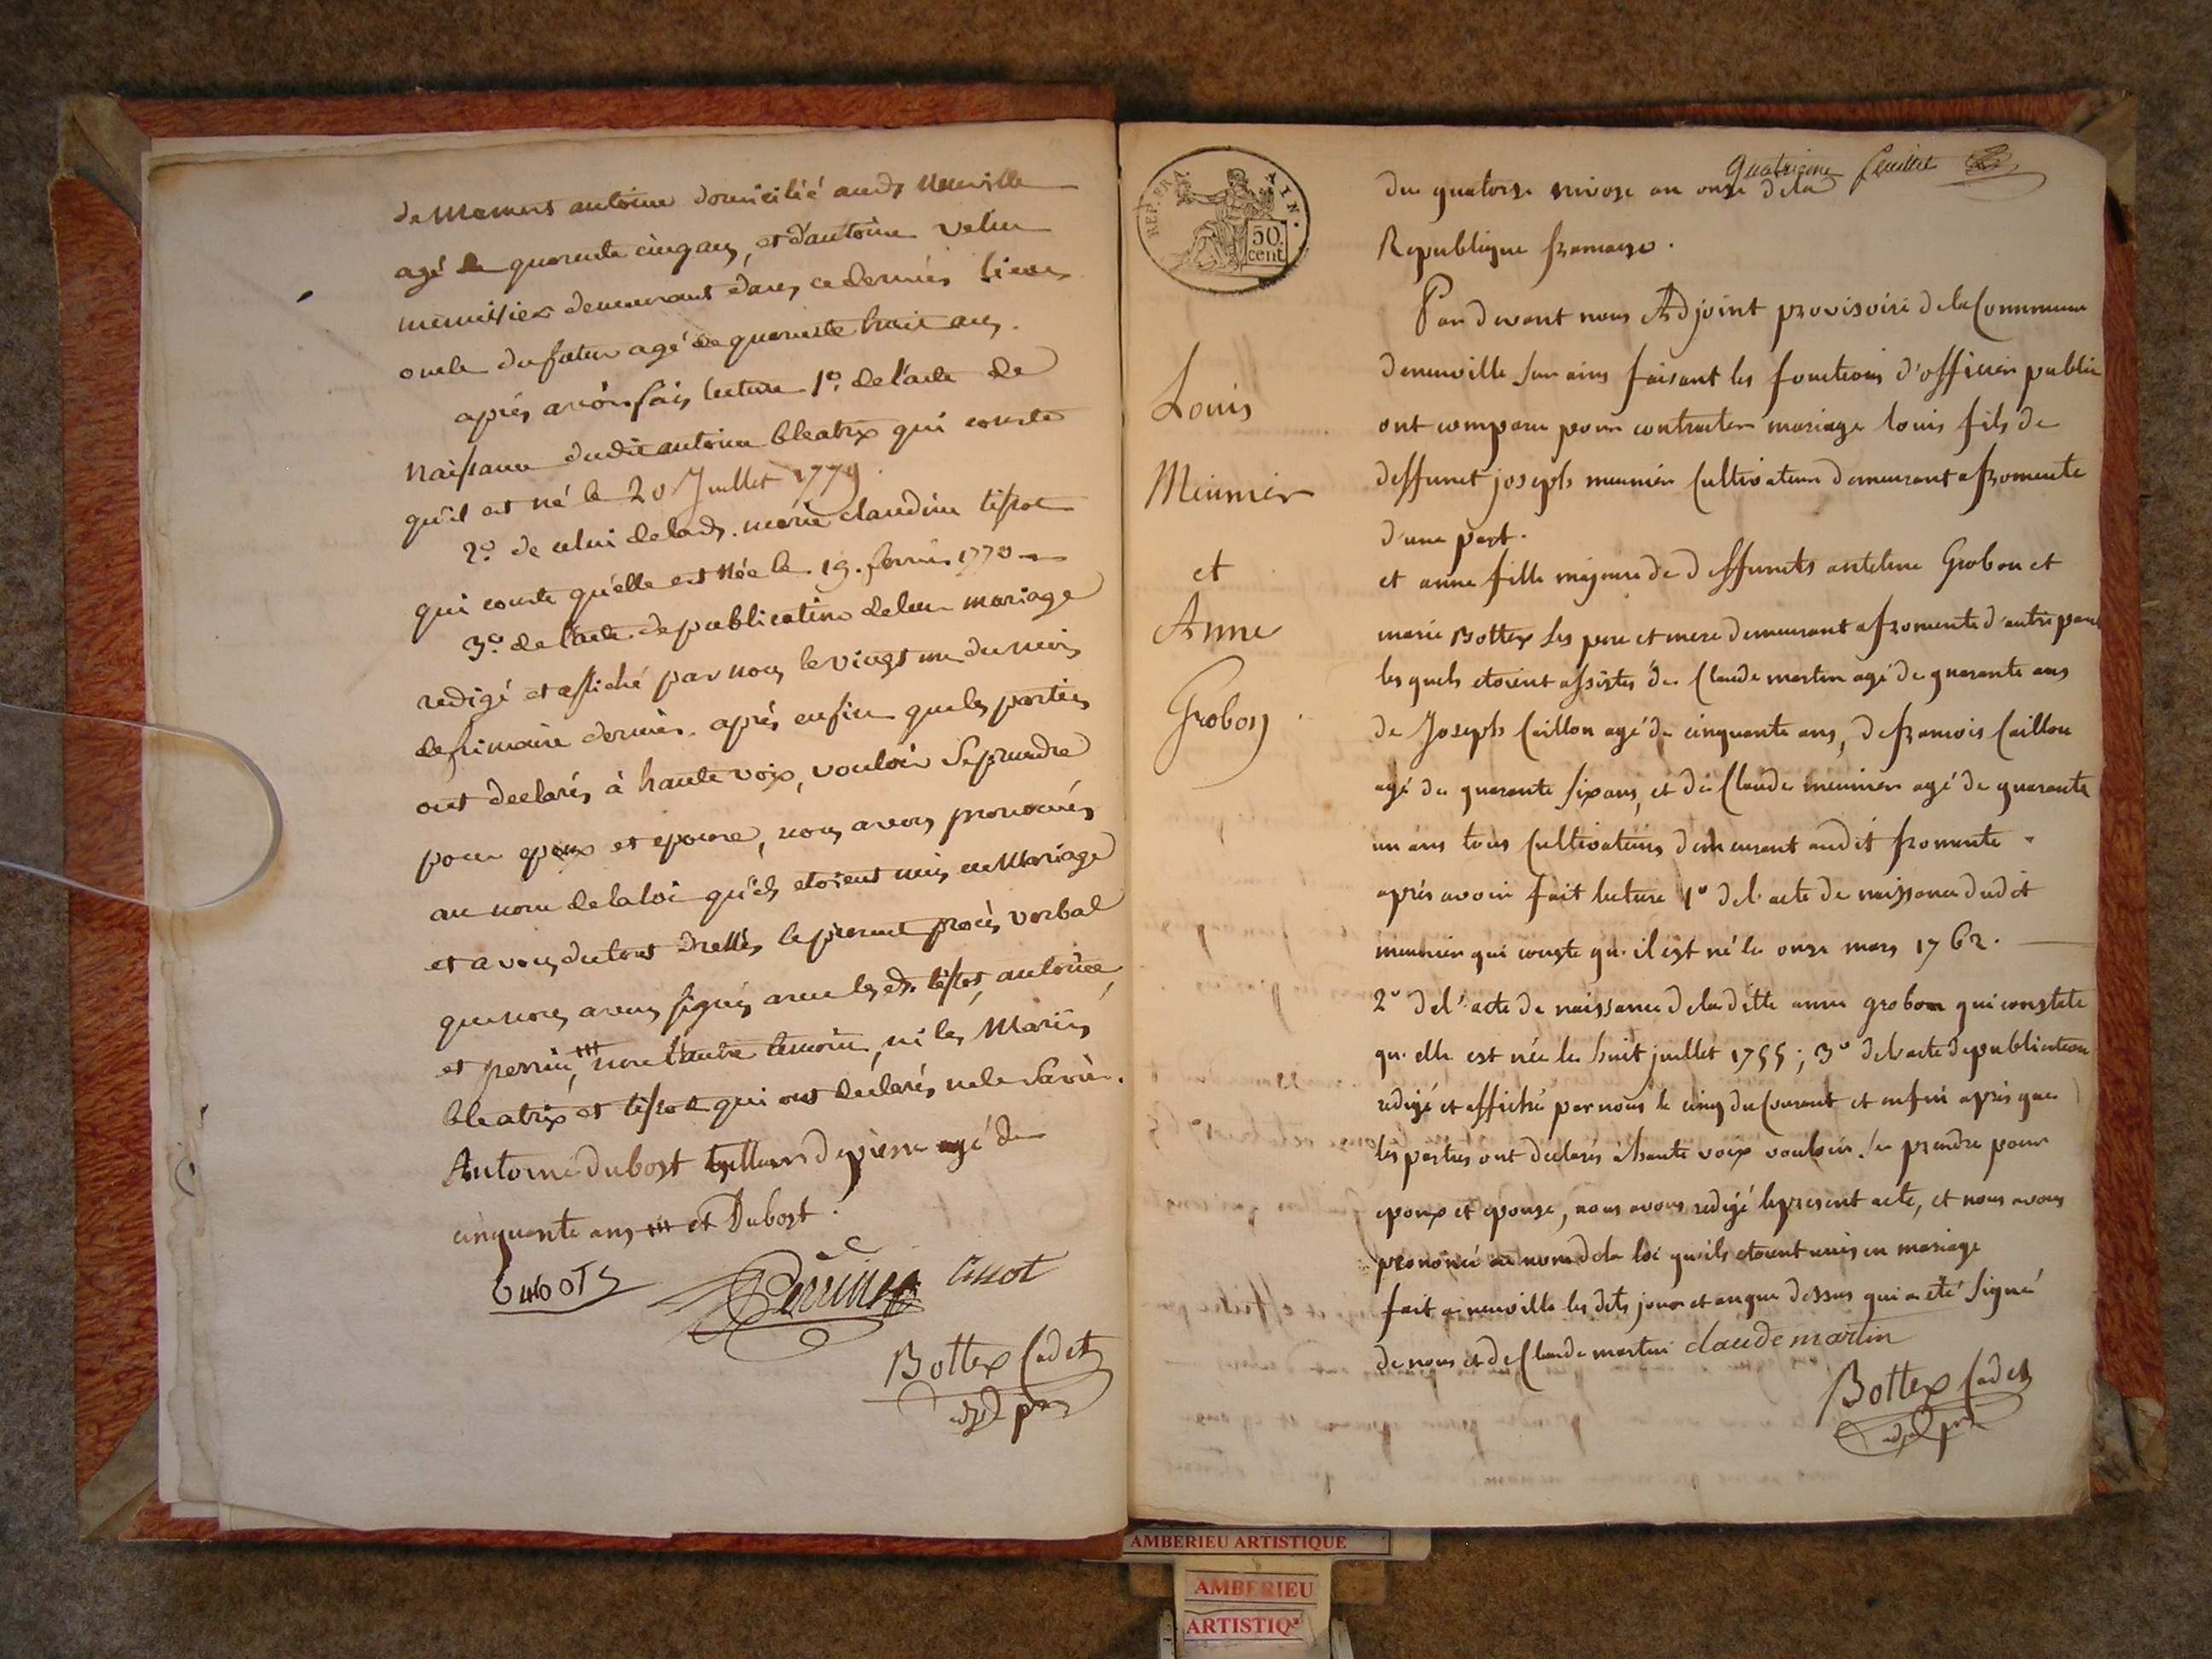 de Memens antoine domicilié audt Neuville
agé de quarente cinq ans, et d'antoine velu
menuisier demeurant dans ce dernier lieu
oncle du futur agé de quarente huit ans.
après avoir fais lecture 1o. de l'acte de
naissance dudit antoine bleatrix qui conste
qu'il est né le 20 Juillet 1779.
2o. de celui de ladt. marie claudine tissot
qui conste qu'elle est née le 19. fevrier 1770
3o. de l'acte de publication de leur mariage
redigé et affiché par nous le vingt un du mois
de frimaire dernier. après enfin que les parties
ont declarés à haute voix, vouloir se prendre
pour epoux et epouse, nous avons prononcés
au nom de la loi qu'ils etoient unis en Mariage
et avons du tout dressés le present procès verbal
que nous avons signés avec les dt. tissot, antoine,
et perrin, non l'autre temoin, ni les Mariés
bleatrix et tissot qui ont declarés ne le savoir.
Antoine dubost de pierre agé de
cinquante ans et Dubost.
Perrin tissot
Bottex Cadet
adjt pre
quatrieme feuillet
REP. FRA
50
cent
du quatorze nivose an onze de la
Republique francaise.
Par devant nous Adjoint provisoire de la Commune
de neuville sur ains faisant les fonctions d'officier public
ont comparu pour contracter mariage louis fils de
deffunct joseph meunier Cultivateur demeurant a fromente
d'une part.
et anne fille majeure de deffuncts antelme Grobon et
marie Bottex ses pere et mere demeurant a fromente d'autre part
lesquels etoient assistés de Claude martin agé de quarante ans
de Joseph Caillon agé de cinquante ans, de francois Caillon
agé de quarante six ans, et de Claude meunier agé de quarante
un ans tous Cultivateurs demeurant audit fromente.
après avoir fait lecture 1o de l'acte de naissance dudit
meunier qui conste qu'il est né le onze mars 1762.
2o de l'acte de naissance de laditte anne grobon qui constate
qu'elle est née le huit juillet 1755; 3o de l'acte de publication
redigé et affiché par nous le cinq du Courant et enfin après que
les parties ont declarés à haute voix vouloir se prendre pour
epoux et epouse, nous avons redigé le present acte, et nous avons
prononcé au nom de la loi qu'ils etoient unis en mariage
fait a neuville les dits jour et an que dessus qui a eté signé
de nous et de Claude martin claude martin
Bottex Cadet
adjt pre
Louis
Meunier
et
Anne
Grobon
AMBERIEU ARTISTIQUE
AMBERIEU
ARTISTIQ